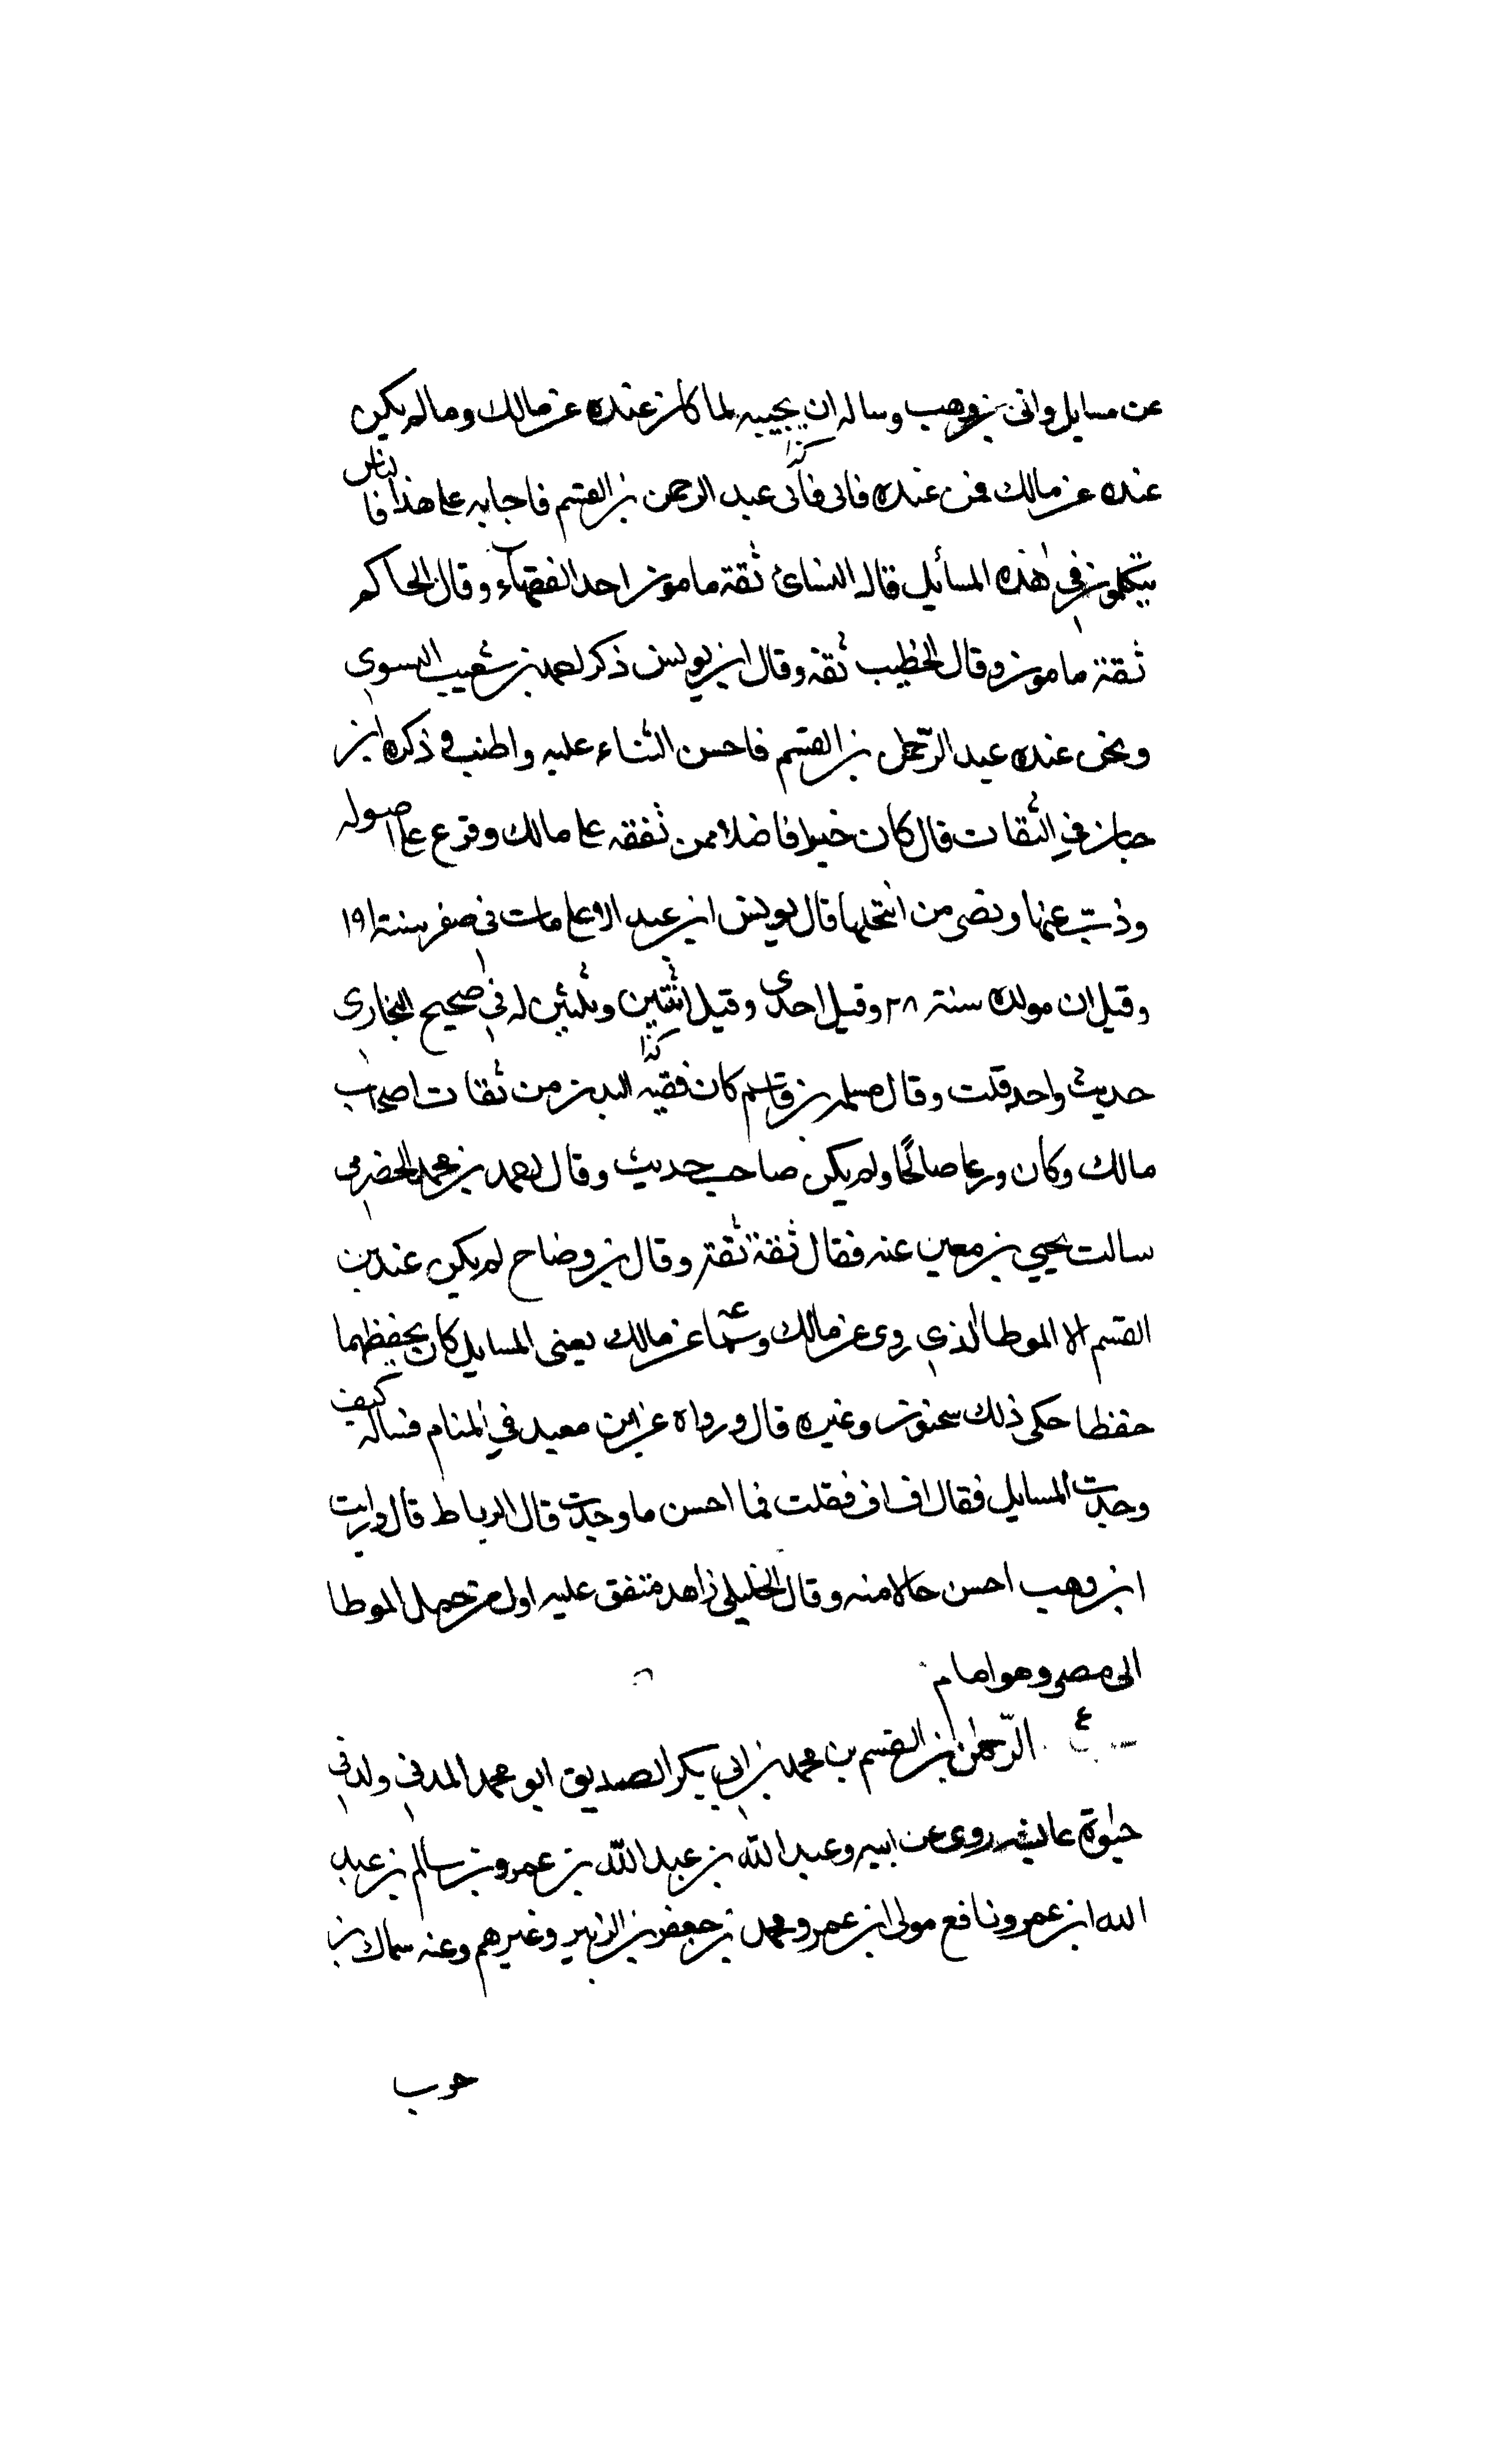 عن مسايل واتى بن وهب وساله ان يجيبه بما كان عنده عن مالك وما لم يكن
عنده عن مالك فمن عنده فابى فاتى عبد الرحمن بن القسم فاجابه على هذا فالناس
كذا
يتكلمون في هذه المسائل قال النسائي ثقة مامون احد الفقهاء وقال الحاكم
ثقة مامون وقال الخطيب ثقة وقال ابن يونس ذكر احمد بن شعيب النسوي
ونحن عنده عبد الرحمن بن القسم فاحسن الثناء عليه واطنب في ذكره ابن
حبان في الثقات قال كان خيرا فاضلا ممن تفقه على مالك وفرع على اصوله
وذب عنها ونصر من انتحلها قال يونس ابن عبد الاعلى مات في صفر سنة ١٩١
وقيل ان مولده سنة ٢٨ وقيل احدى وقيل اثنتين وثلثين له في صحيح البخاري
كذا
حديث واحد قلت وقال مسلمه بن قاسم كان فقيه البدن من ثقات اصحاب
مالك وكان ورعا صالحا ولم يكن صاحب حديث وقال احمد بن محمد الحضرمي
سالت يحيى بن معين عنه فقال ثقة ثقة وقال بن وضاح لم يكن عند بن
القسم الا الموطا الذي روى عن مالك وسماعه عن مالك يعنى المسايل كان يحفظهما
حفظا حكى ذلك سحنون وغيره قال ورواه عن ابن معبد في المنام فساله كيف
وجدت المسايل فقال اف اف فقلت فما احسن ما وجدت قال الرباط قال ورايت
ابن وهب احسن حالا منه وقال الخليلي زاهد متفق عليه اول من حمل الموطا
الى مصر وهو امام
ع الرحمن بن القسم بن محمد بن ابي بكر الصديق ابو محمد المدني ولد في
حيوة عايشه روى عن ابيه وعبد الله بن عبد الله بن عمر وبن سالم بن عبد
الله ابن عمر ونافع مولى ابن عمر ومحمد بن جعفر بن الزبير وغيرهم وعنه سماك بن
حرب